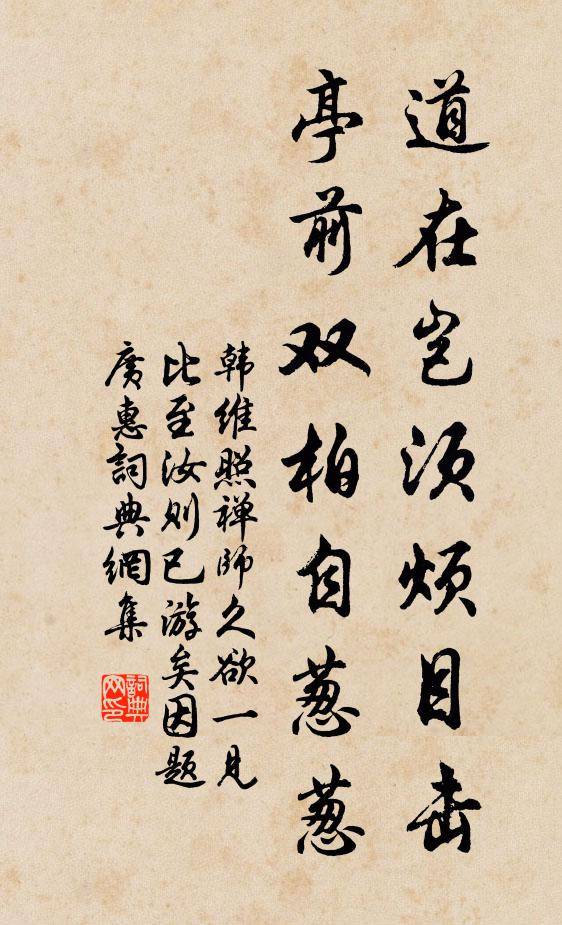 道在岂须烦目击
亭前双柏自葱葱
韩维照禅师久欲一见
比至汝则已游矣因题
廣惠詞典網集
詞典
网印